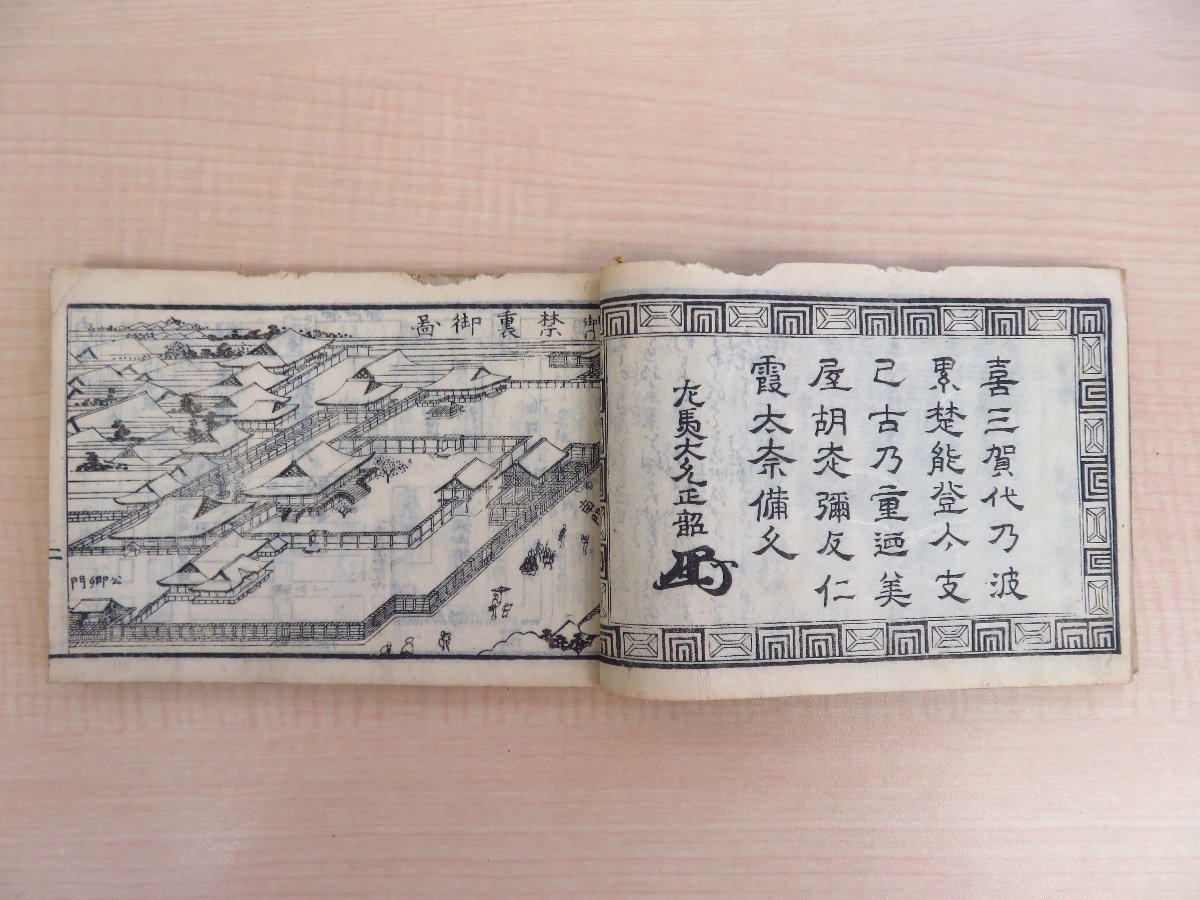 喜三賀代乃波
累楚能登介支
己古乃重迺美
屋胡 彌反仁
霞太奈備久
左馬大允正韶
禁裏御啚
公卿門
二